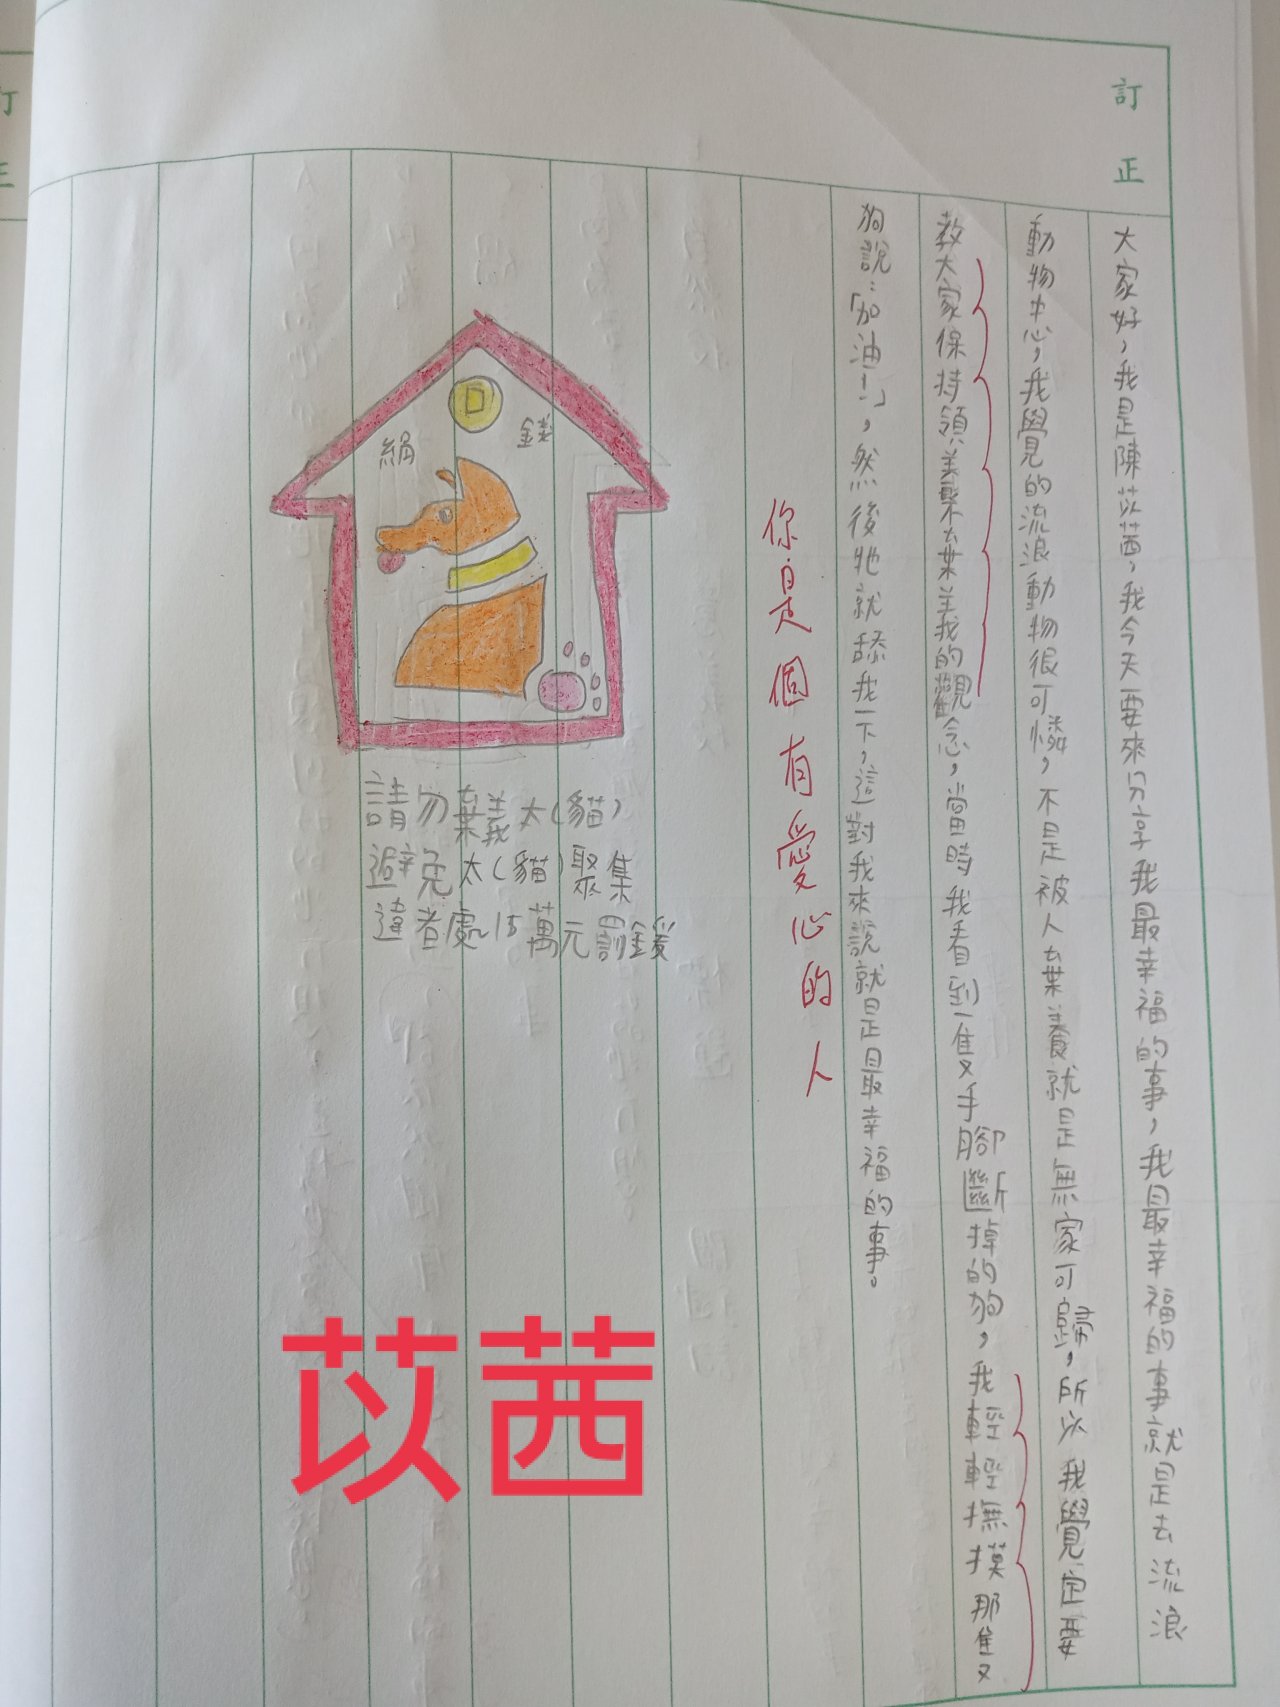 訂正
大家好，我是陳苡茜，我今天要來分享我最幸福的事，我最幸福的事就是去流浪
動物中心，我覺的流浪動物很可憐，不是被人棄養就是無家可歸，所以我覺定要
教大家保持領養棄養的觀念，當時我看到一隻手腳斷掉的狗，我輕輕撫摸那隻
狗說：「加油！」，然後牠就舔我一下，這對我來說就是最幸福的事。
你是個有愛心的人
捐 錢
請勿棄義犬(貓)
避免犬(貓)聚集
違者處15萬元罰鍰
苡茜